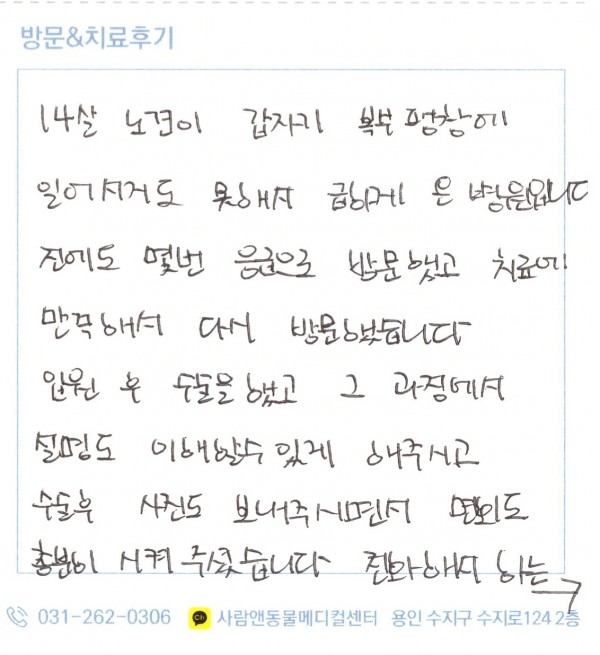 방문&치료후기
14살 노견이 갑자기 복부 팽창에
일어서거도 못해서 급하게 온 병원입니다
전에도 몇번 응급으로 방문했고 치료에
만족해서 다시 방문했습니다
입원 후 수술을 했고 그 과정에서
설명도 이해할수 있게 해주시고
수술후 사진도 보내주시면서 면회도
충분히 시켜 주셨습니다 전화해서 하는→
031-262-0306 ch 사람앤동물메디컬센터 용인 수지구 수지로124 2층